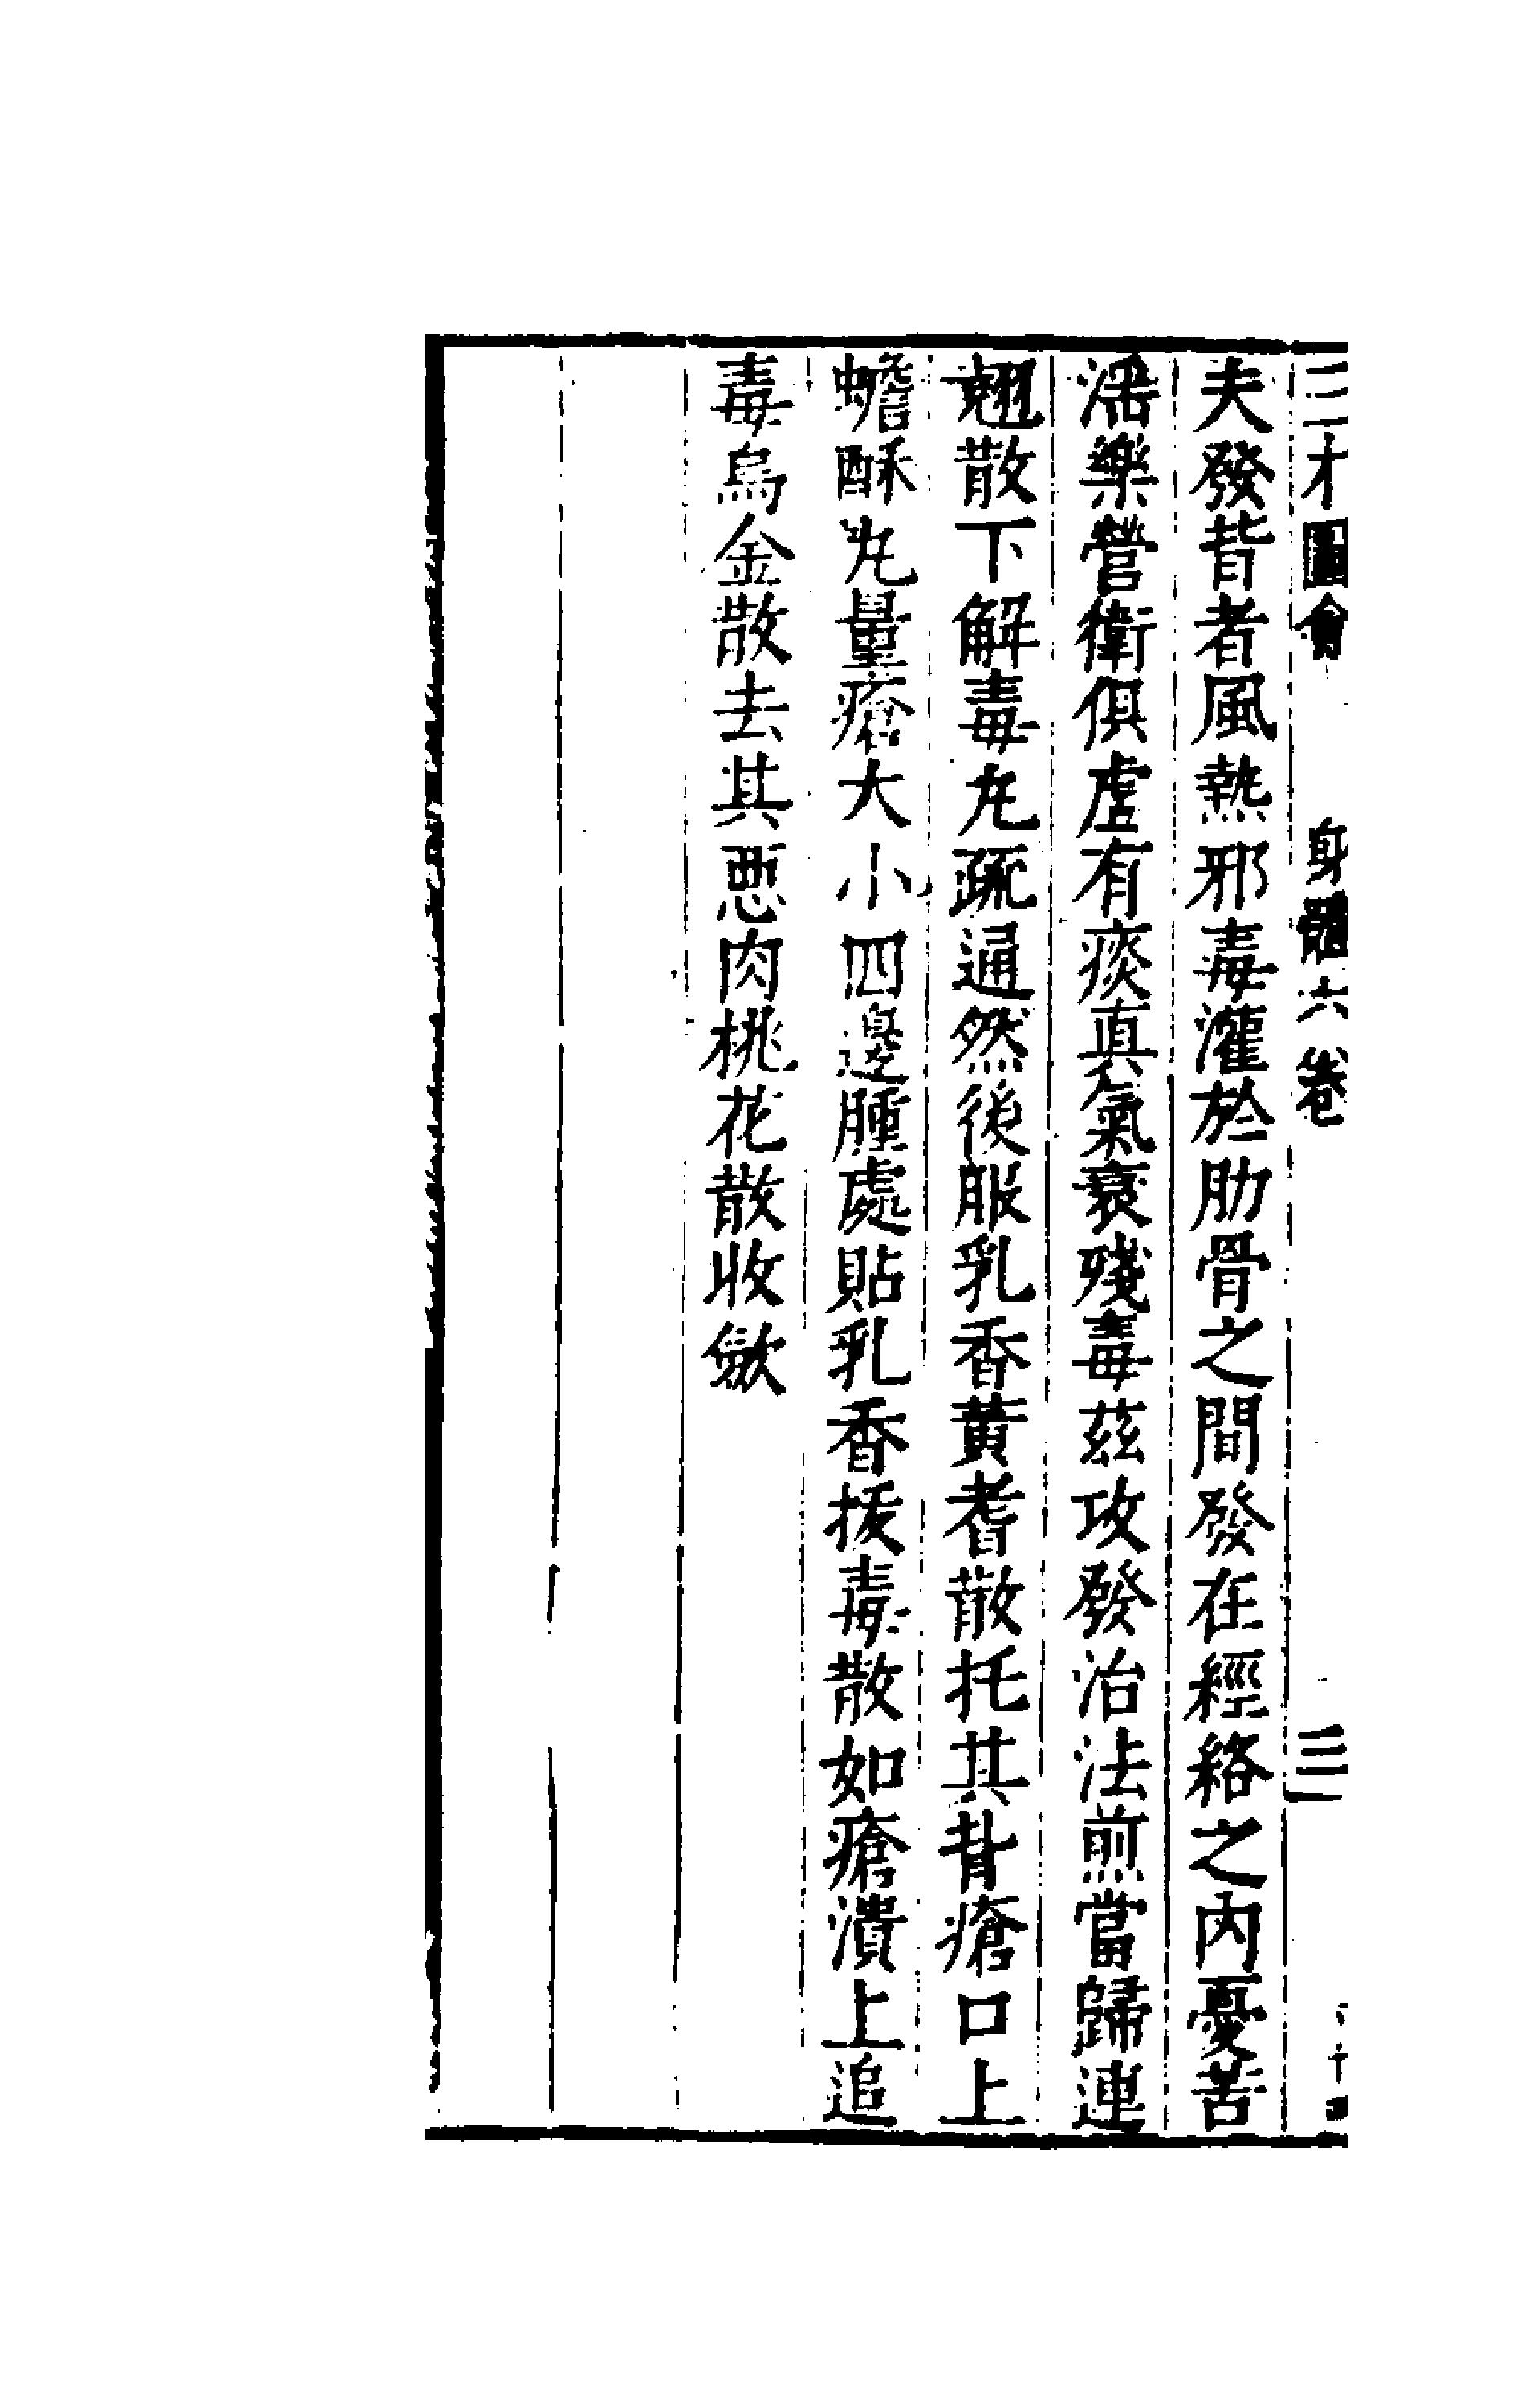 三才圖會 身體六卷 三
夫發背者風熱邪毒灌於肋骨之間發在經絡之內憂苦
滛樂營衛俱虛有痰真氣衰殘毒茲攻發治法煎當歸連
翹散下解毒丸疏通然後服乳香黃耆散托其背瘡口上
蟾酥丸量瘡大小四邊腫處貼乳香拔毒散如瘡潰上追
毒烏金散去其惡肉桃花散收歛